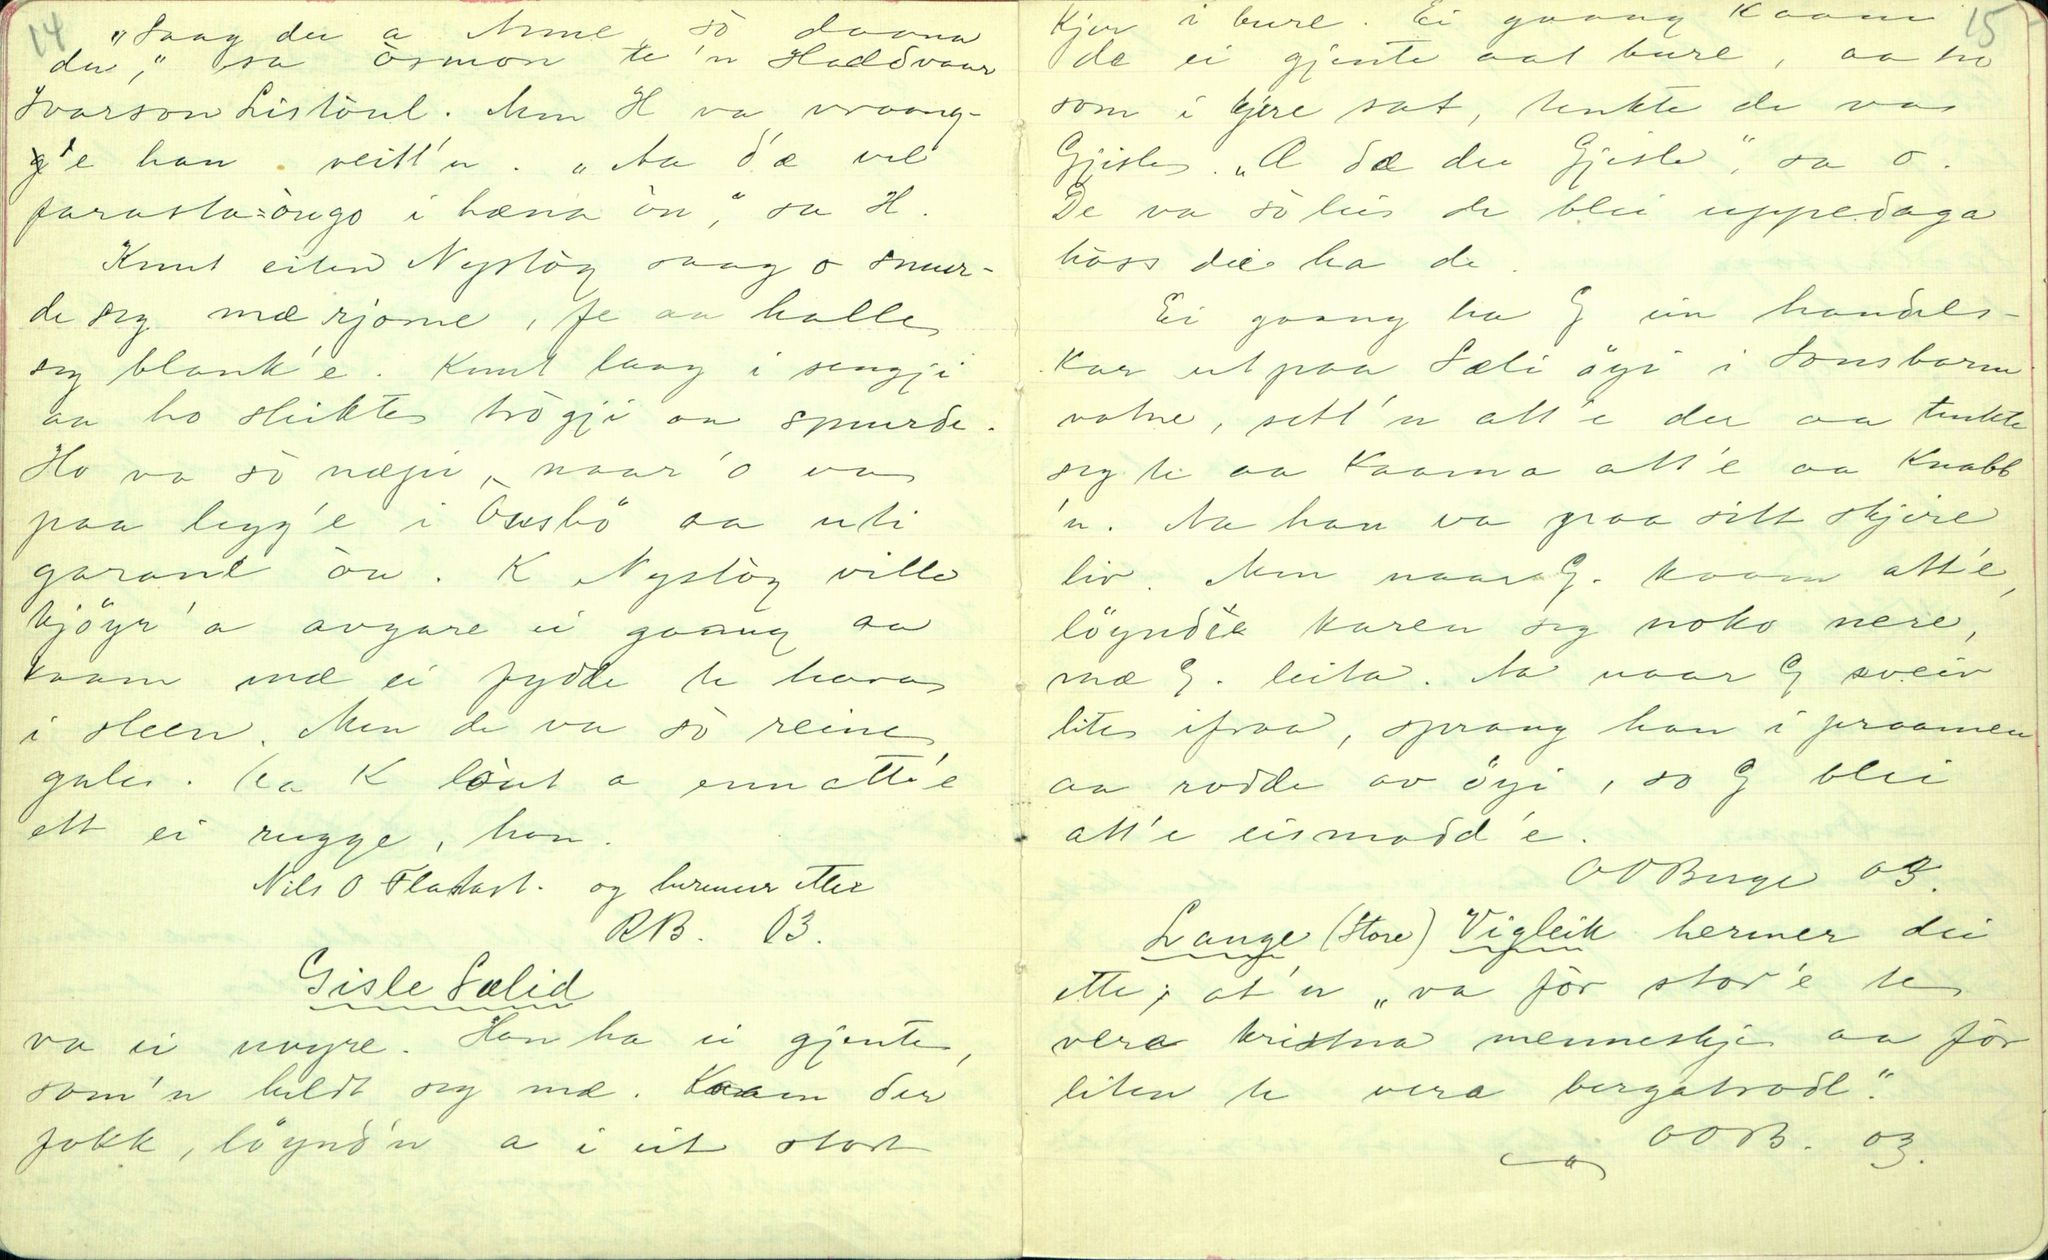 14
"Saag du a Anne, sò daana
du," sa Òsmon te'n Haddvaar
Ivarson Listòul. Men H va vraang-
g'e han veitt'n. "Aa d'æ vel
farasta=òngo i hæna òn," sa H.
Knut eiten Nystòg saag o smur-
de seg mæ rjome, fe aa halle
seg blank'e. Knut laag i sengji
aa ho sleikte trògji aa spurde.
Ho va sò næpi, naar'o va
paa legg'e i Òusbö aa uti
garane òn. K Nystòg ville
kjöyr'a avgare ei gaang aa
kaam mæ ei fydde te hava
i sleen. Men de va sò reine
gale. Ha K lòut a enn att'e
ett ei rugge, han.
Nils O Flatast. og hermer etter
RB. 03.
Gisle Sælid
va ei uvyre. Han ha ei gjente,
som'n heldt seg mæ. Kaam der
fokk, löynd'n a i eit stort
15
kjer i bure. Ei gaang kaam
de ei gjente aat bure, aa ho
som i kjere sat, tenkte de va
Gjisle. "Æ dæ du Gjisle", sa o.
De va sò leis de blei uppedaga
hòss dei ha de.
Ei gaang ha G ein handels-
kar ut paa Sæli öyi i Sonsbarm
vatne, sett'n att'e der aa tenkte
seg te aa kaama att'e aa knabb
'n. Aa han va graa sitt skjire
liv. Men naar G. kaam att'e,
löynde karen seg noko nere,
mæ G. leita. Aa naar G sveiv
lite ifraa, sprang han i praamen
aa rodde av öyi, so G blei
att'e eismadd'e.
OOBerge 03.
Lange (Store) Vigleik hermer dei
ette, at'n "va fòr stor'e te
vera kristna menneskje aa fòr
liten te vera bergatrodl."
OOB. 03.